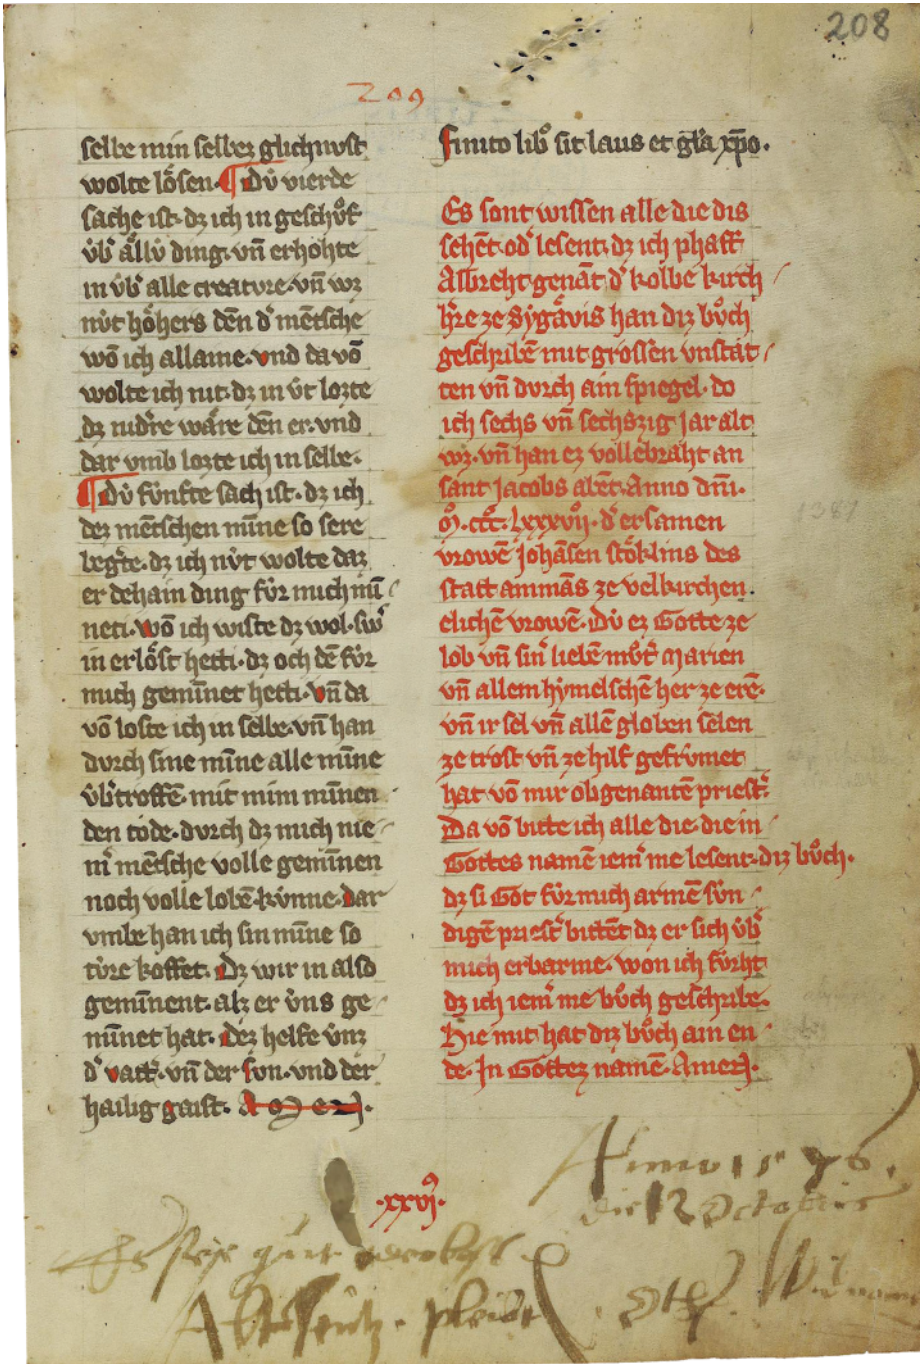 208
209
selbe min selbez glichnust
wolte lo̍sen. ¶ Dv̍ vierde
sache ist. dz ich in geschv̊f
v̍b' ällv̍ ding. vn̄ erhohte
in v̍b' alle creatvre. vn̄ wz
nv̍t ho̍hers dēn d' mētsche
wō ich allaine. vnd da vō
wolte ich nit. dz in v̍t lozte
dz nid're wa̍re dēn er. vnd
dar vmb lozte ich in selbe.
¶ Dv̍ fv̍nfte sach ist. dz ich
dez mētschen mīne so sere
beg'te. dz ich nv̍t wolte daz
er dehain ding fv̍r mich mī
neti. wō ich wiste dz wol. sw'
in erlo̍st hetti. dz och dē fv̍r
mich gemīnet hetti. vn̄ da
vō loste ich in selbe. vn̄ han
dvrch sine mīne alle mīne
v̍b'troffē. mit mim mīnen
den tode. dvrch dz mich nie
m' mētsche volle gemīnen
noch volle lobē kv̍nne. dar
vmbe han ich sin mīne so
tv̍re koffet. Dz wir in also
gemīnent. alz er v̍ns ge
mīnet hat. Dez helfe v̍nz
d' vatt'. vn̄ der svn. vnd der
hailig gaist. AMEN.
.xxvj.
Finito lib° sit laus et gl'a xp̄o.
Es sont wissen alle die dis
sehēt. od' lesent. dz ich phaff
Albreht genāt d' kolbe kirch
h're ze Sygävis han diz bv̊ch
geschribē mit grossen vnstat
ten vn̄ dvrch ain spiegel. do
ich sechs vn̄ sechszig jar alt
wz. vn̄ han ez vollebraht an
sant Jacobs abēt. Anno dn̄i.
M°. ccc°. Lxxxvij°. d' ersamen
vrowē johāsen sto̍klins des
statt ammās ze velkirchen.
elichē vrowē. Dv̍ ez Gotte ze
lob vn̄ sin' liebē mv̊t' Marien
vn̄ allem hymelschē her ze erē.
vn̄ ir sel vn̄ allē globen selen
ze trost vn̄ ze hilf gefrv̍met
hat vō mir obgenantē priest'.
Da vō bitte ich alle die. die in
Gottes namē iem' me lesent. diz bv̊ch.
dz si Got fv̍r mich armē sv̍n
digē priest' bittēt dz er sich v̍b'
mich erbarme. won ich fv̍rht
dz ich iem' me bv̊ch geschribe.
Hie mit hat diz bv̊ch ain en
de. In Gottez namē. Amen.
1387
Anno 1576.
die 12 Octobris